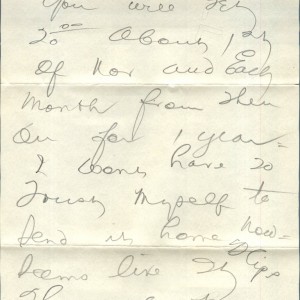 You will get
20.00 about 1st
of Nov and Each
Month from then
on for 1 year-
I wont have to
Trust Myself to
Send it home now-
Seems like